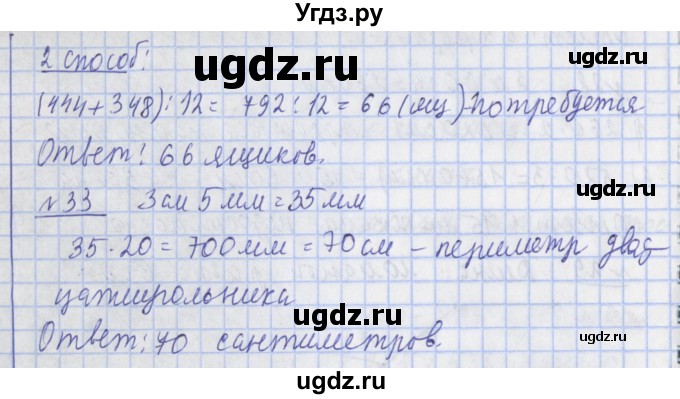 Угдз.ру
2 способ:
(444 + 348) : 12 = 792 : 12 = 66 (ящ) - потребуется
Ответ: 66 ящиков.
№33 3 см 5 мм = 35 мм
35 · 20 = 700 мм = 70 см – периметр двад-
цатиугольника
Ответ: 70 сантиметров.
ugdz.ru
ugdz.ru
ugdz.ru
ugdz.ru
ugdz.ru
ugdz.ru
ugdz.ru
ugdz.ru